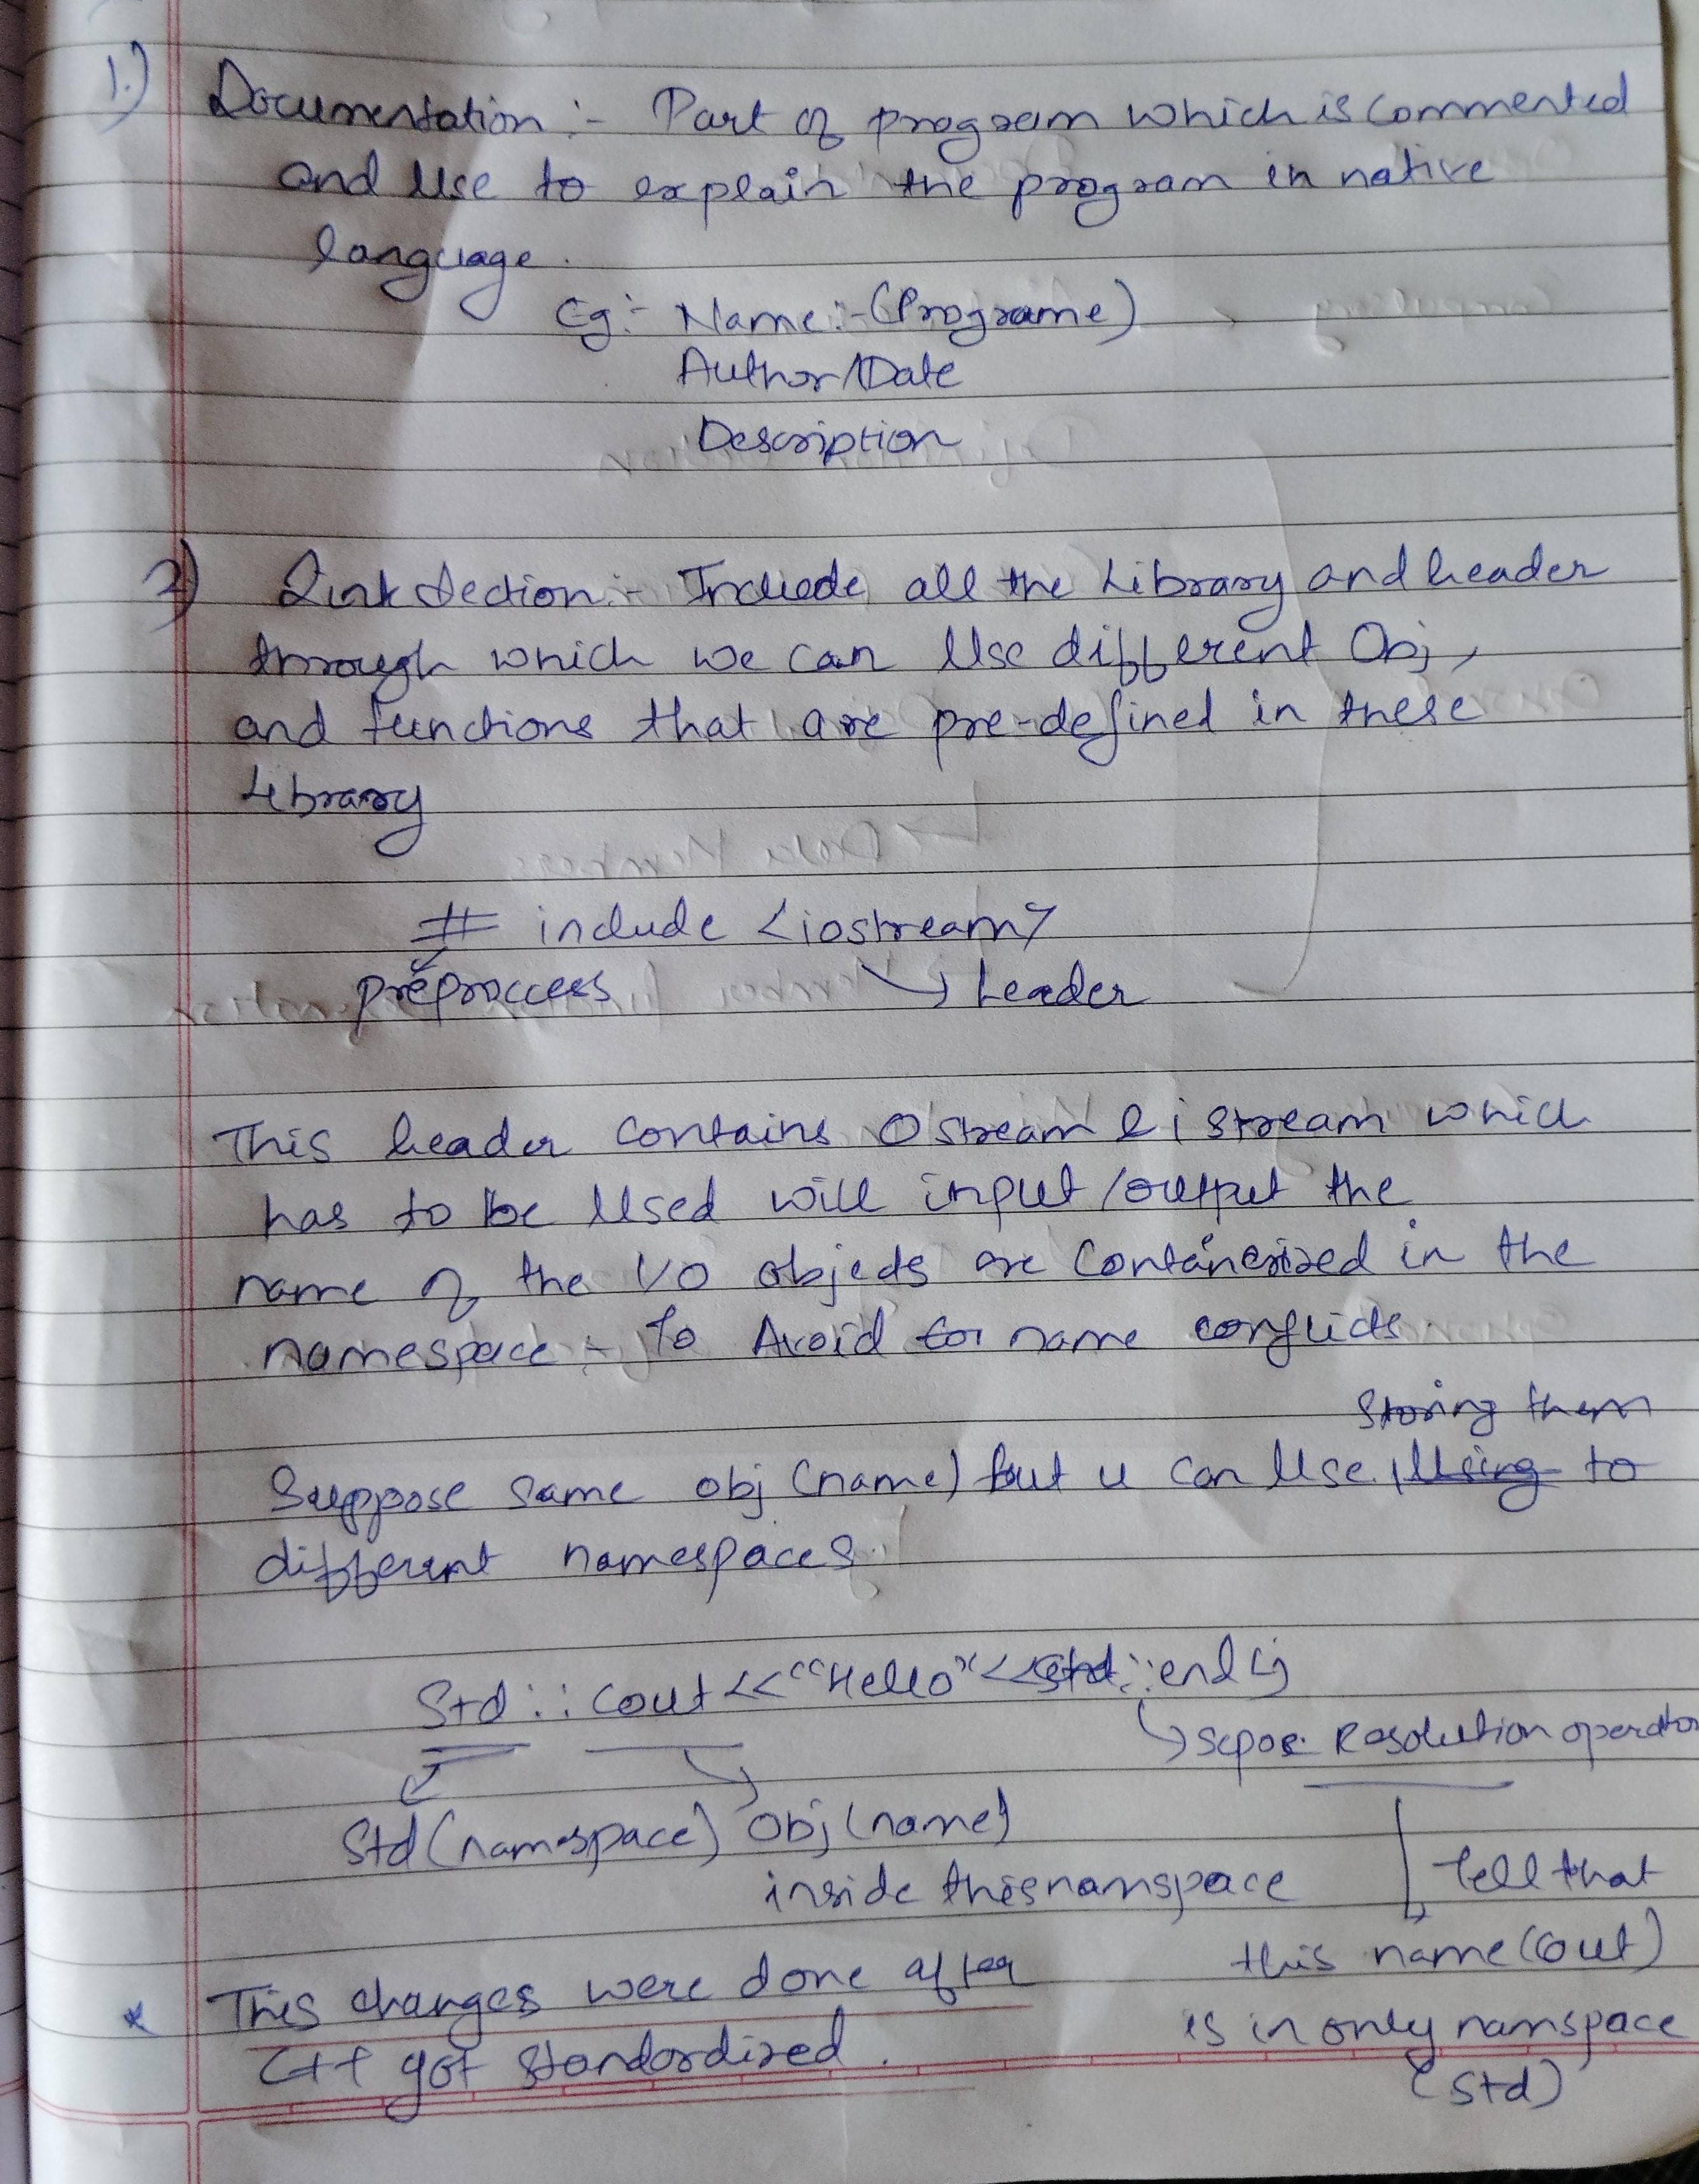 1.) Documentation :- Part of program which is commented
and Use to explain the program in native
language.
Eg:- Name:-(Programe)
Author/Date
Description
2) Link Section:- Include all the Library and header
through which we can Use different Obj,
and functions that are pre-defined in these
Library
# include <iostream>
preproccess → header
This header contains Ostream & istream which
has to be Used will input/output the
name of the I/O objects are Containerized in the
namespace:- To Avoid for name conflicts
Storing them
Suppose same obj (name) but u can Use, Using to
different namespaces.
Std :: Cout<<"Hello"<<Std::endl;
Resolution operator
Std(namespace) Obj (name)
inside this namspace
Tell that
this name (Cout)
* This changes were done after
is in only namspace
C++ got Standardized.
(Std)